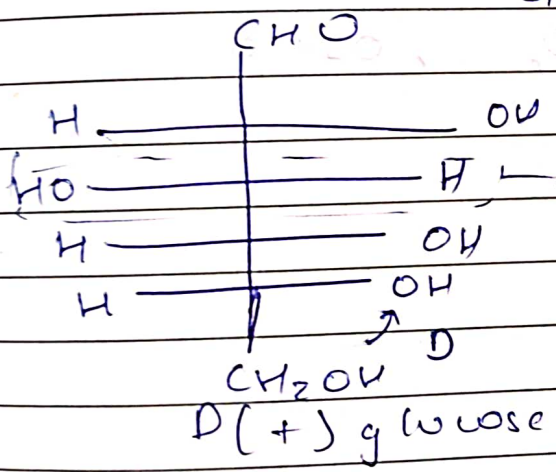 CHO
H OH
HO H
H OH
H OH
D
CH₂OH
D(+) glucose